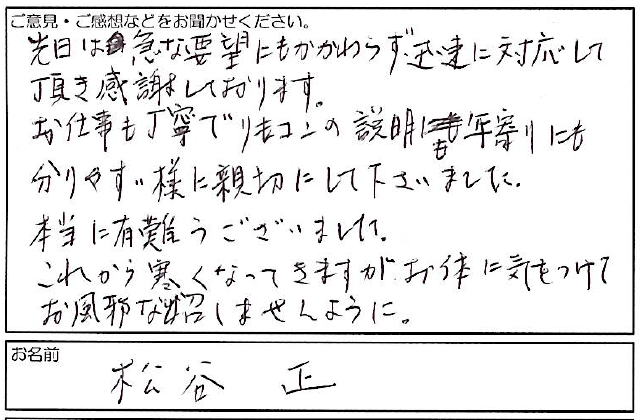 ご意見・ご感想などをお聞かせください。
先日は急な要望にもかかわらず迅速に対応して
頂き感謝しております。
お仕事も丁寧でリモコンの説明も年寄りにも
分りやすい様に親切にして下さいました。
本当に有難うございました。
これから寒くなってきますがお体に気をつけて
お風邪など召しませんように。
お名前
松谷 正